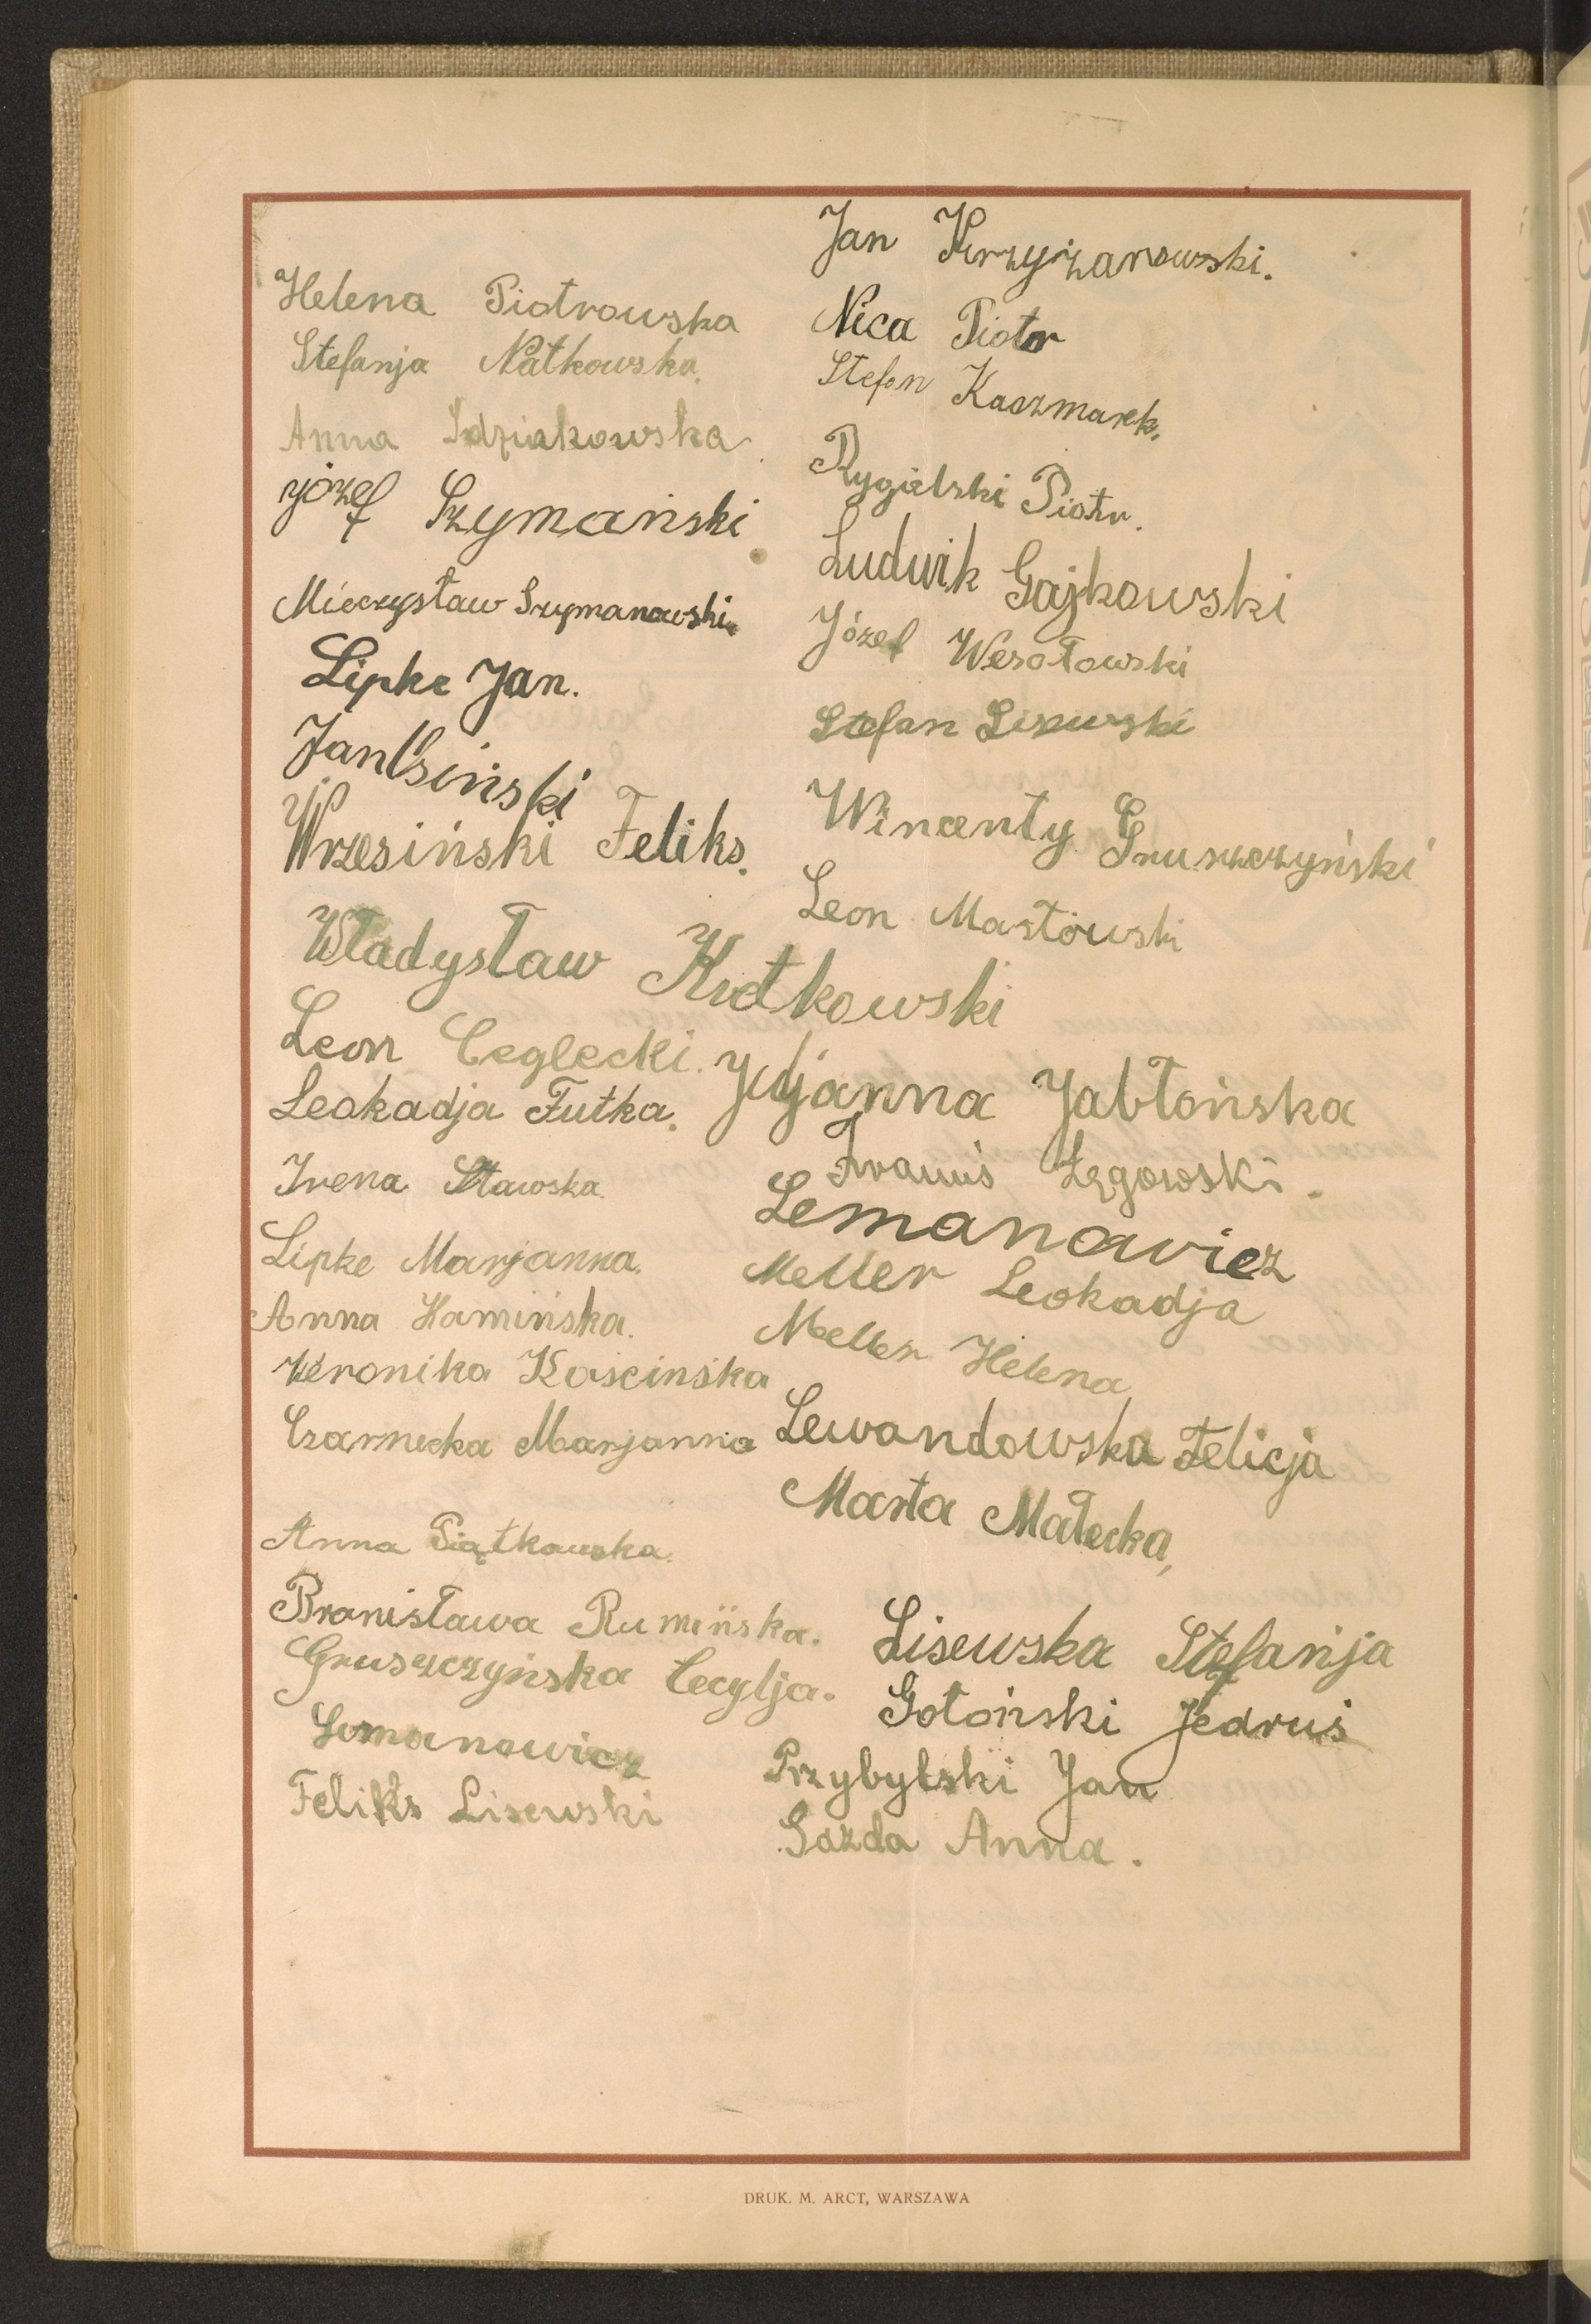 Helena Piotrowska
Stefanja Natkowska.
Anna Idziakowska
Józef Szymański
Mieczysław Szymanowski.
Lipke Jan.
Jan
Wrzesiński Feliks.
Władysław Kutkowski
Leon Ceglecki.
Leokadja Futka.
Irena Stawska.
Lipke Marjanna.
Anna Kamińska.
Weronika Kościńska
Czarnecka Marjanna
Anna Piątkowska.
Bronisława Rumińska.
Gruszczyńska Cecylja.
Lemanowicz
Feliks Lisewski
Jan Krzyżanowski.
Nica Piotr
Stefan Kaczmarek.
Rygielski Piotr.
Ludwik Gajkowski
Józef Wesołowski
Stefan Lisewski
Wincenty Gruszczyński
Leon Masłowski
Juljanna Jabłońska
Łęgowski.
Lemanowicz
Meller Leokadja
Meller Helena
Lewandowska Felicja
Marta Małecka,
Lisewska Stefanja
Gołoński Jedruś
Przybylski Jan
Gazda Anna.
DRUK. M. ARCT, WARSZAWA